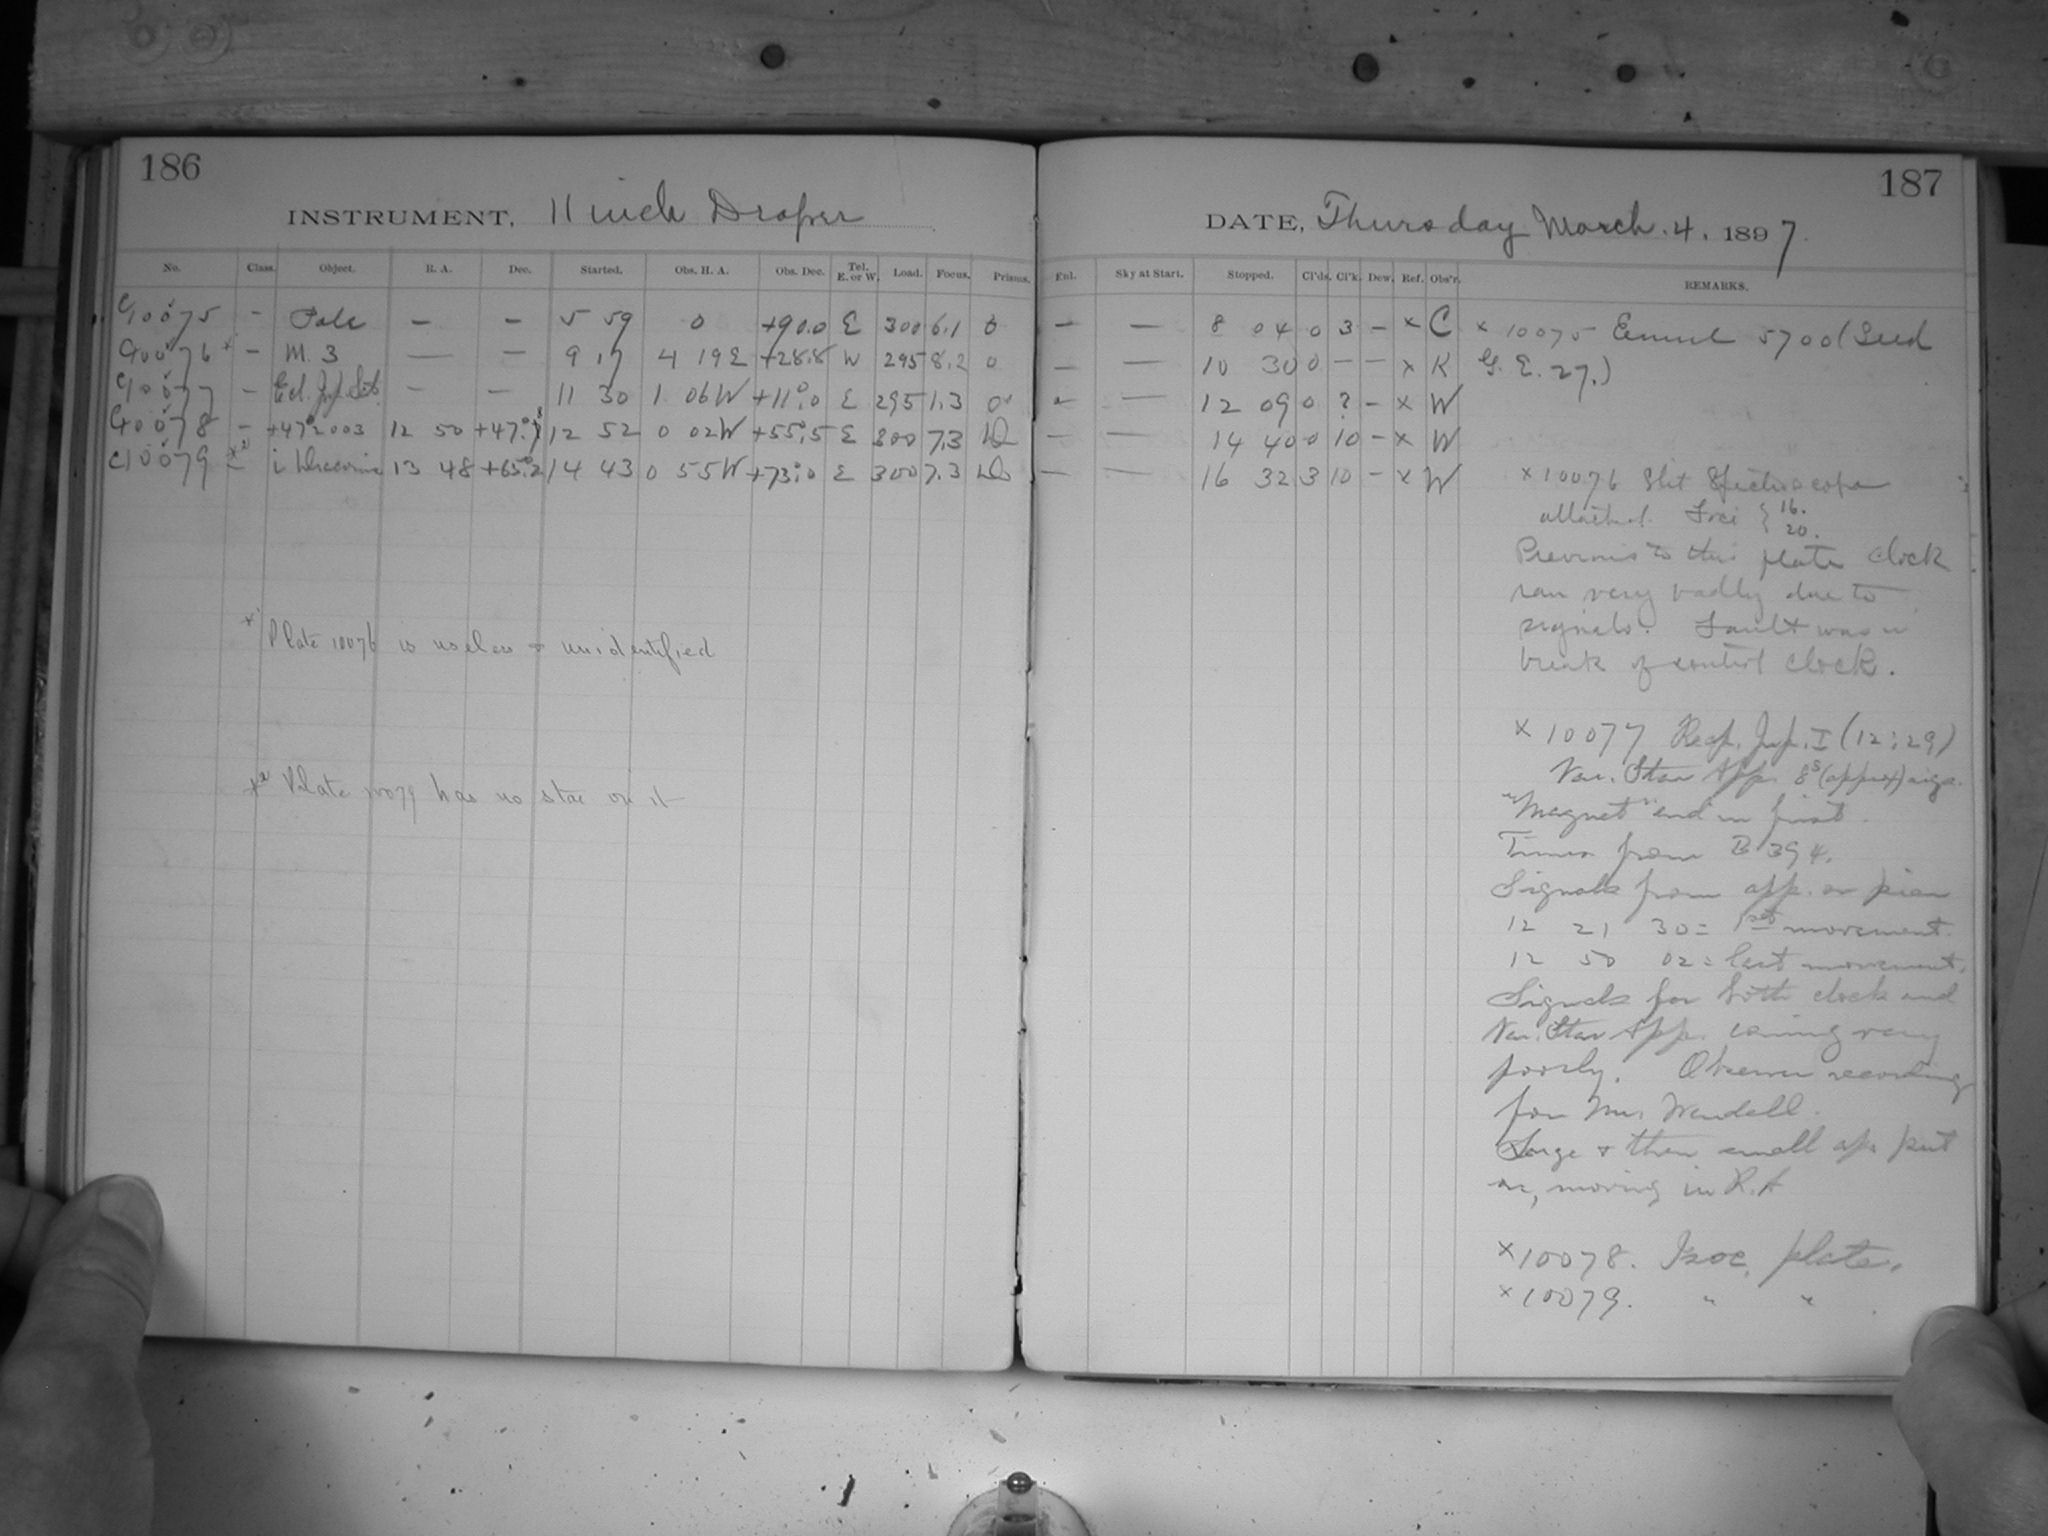 186
INSTRUMENT, 11 inch Draper
No. Class. Object. R. A. Dec. Started. Obs. H. A. Obs. Dec. Tel. E. or W. Load. Focus. Prisms.
C10075 – Pole – – 5 59 0 +90.0 E 300 6.1 0
C10076 x – M. 3 — – 9 17 4 19E +28.8 W 295 8.2 0
C10077 – Ecl. Jup. Sat. – – 11 30 1 06W +11.0 E 295 1.3 0
C10078 – +47°2003 12 50 +47. 12 52 0 02W +55.5 E 300 7.3
C10079 – i Draconis 13 48 +65.2 14 43 0 55W +73.0 E 300 7.3
x' Plate 10076 is useless & unidentified
x² Plate 10079 has no star on it
187
DATE, Thursday March. 4, 1897.
Enl. Sky at Start. Stopped. Cl'ds. Cl'k. Dew. Ref. Obs'r. REMARKS.
– — 8 04 0 3 – x C x 10075 5700 (Seed
– — 10 30 0 – – x K G. E. 27.)
– — 12 09 0 ? – x W
– — 14 40 0 10 – x W
– — 16 32 3 10 – x W
x 10076 Slit Spectroscope
attached. Foci { 16.
20.
Previous to this plate clock
ran very badly due to
signals. Fault was in
break of control clock.
x 10077 Reap. Jup. I (12:29)
Var. Star App. 8s (approx) sigs.
"Magnet" end in first.
Times from B 394.
Signals from app. on pier
12 21 30 = 1st movement.
12 50 02 = last movement.
Signals for both clock and
Var. Star App. coming very
poorly. Observer recording
for Mr. Wendell.
Large & then small ap. put
on, moving in R. A
x 10078. Isoc. plate.
x 10079. " "